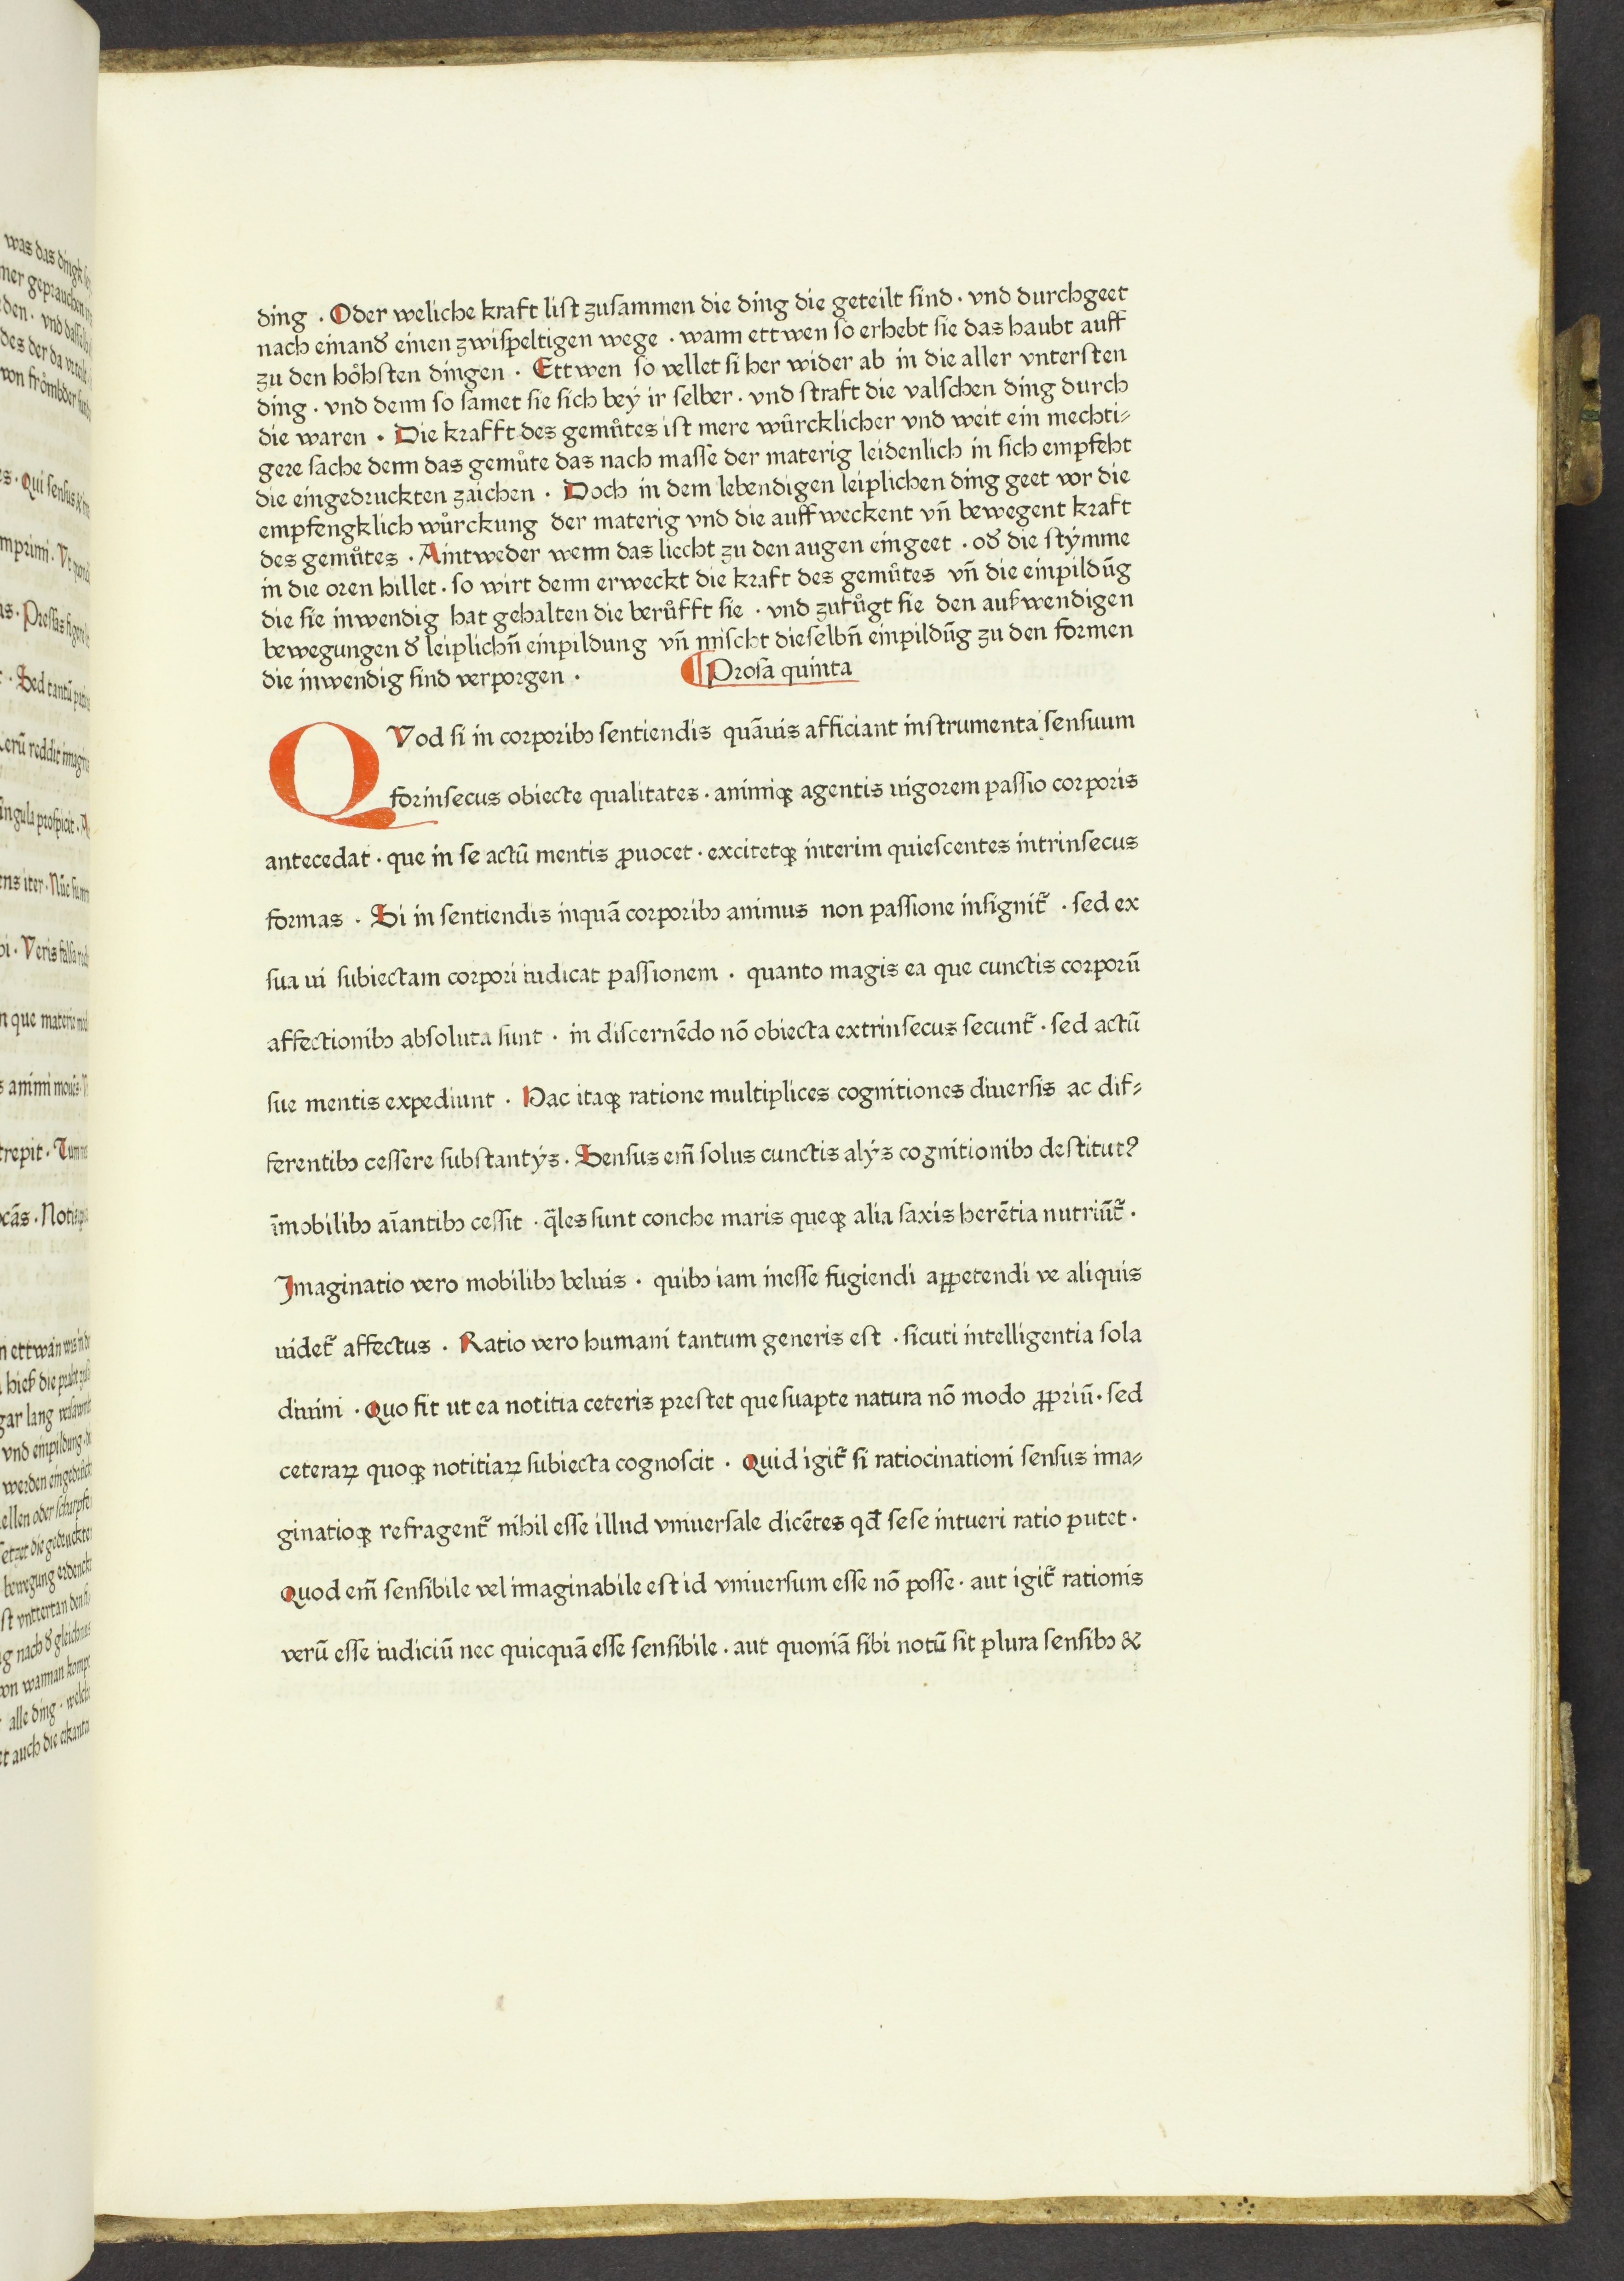 ding · Oder weliche kraft list zusammen die ding die geteilt sind · vnd durchgeet
nach einand̄ einen zwispeltigen wege · wann ettwen so erhebt sie das haubt auff
zu den hôhsten dingen · Ettwen so vellet si her wider ab in die aller vntersten
ding · vnd denn so samet sie sich bey ir selber · vnd straft die valschen ding durch
die waren · Die krafft des gemůtes ist mere wůrcklicher vnd weit ein mechti-
gere sache denn das gemůte das nach masse der materig leidenlich in sich empfeht
die eingedruckten zaichen · Doch in dem lebendigen leiplichen ding geet vor die
empfengklich wůrckung der materig vnd die auffweckent vn̄ bewegent kraft
des gemůtes · Aintweder wenn das liecht zu den augen eingeet · od̄ die stymme
in die oren hillet · so wirt denn erweckt die kraft des gemůtes vn̄ die einpildūg
die sie inwendig hat gehalten die berůfft sie · vnd zufůgt sie den außwendigen
bewegungen d̄ leiplichn̄ einpildung vn̄ mischt dieselbn̄ einpildūg zu den formen
die inwendig sind verporgen ·
¶ Prosa quinta
QVod si in corporibꝫ sentiendis quāuis afficiant instrumenta sensuum
forinsecus obiecte qualitates · animiqꝫ agentis uigorem passio corporis
antecedat · que in se actū mentis ꝓuocet · excitetqꝫ interim quiescentes intrinsecus
formas · Si in sentiendis inquā corporibꝫ animus non passione insignit᷑ · sed ex
sua ui subiectam corpori iudicat passionem · quanto magis ea que cunctis corporū
affectionibꝫ absoluta sunt · in discernēdo nō obiecta extrinsecus secunt᷑ · sed actū
sue mentis expediunt · Hac itaqꝫ ratione multiplices cognitiones diuersis ac dif-
ferentibꝫ cessere substantÿs · Sensus em̄ solus cunctis alÿs cognitionibꝫ destitutꝰ
īmobilibꝫ aīantibꝫ cessit · q̄les sunt conche maris queqꝫ alia saxis herētia nutriūt᷑ ·
Imaginatio vero mobilibꝫ beluis · quibꝫ iam inesse fugiendi aꝑpetendi ve aliquis
uidet᷑ affectus · Ratio vero humani tantum generis est · sicuti intelligentia sola
diuini · Quo fit ut ea notitia ceteris prestet que suapte natura nō modo ꝓpriū · sed
ceteraꝝ quoqꝫ notitiaꝝ subiecta cognoscit · Quid igit᷑ si ratiocinationi sensus ima-
ginatioqꝫ refragent᷑ nihil esse illud vniuersale dicētes qd̄ sese intueri ratio putet ·
Quod em̄ sensibile vel imaginabile est id vniuersum esse nō posse · aut igit᷑ rationis
verū esse iudiciū nec quicquā esse sensibile · aut quoniā sibi notū sit plura sensibꝫ &